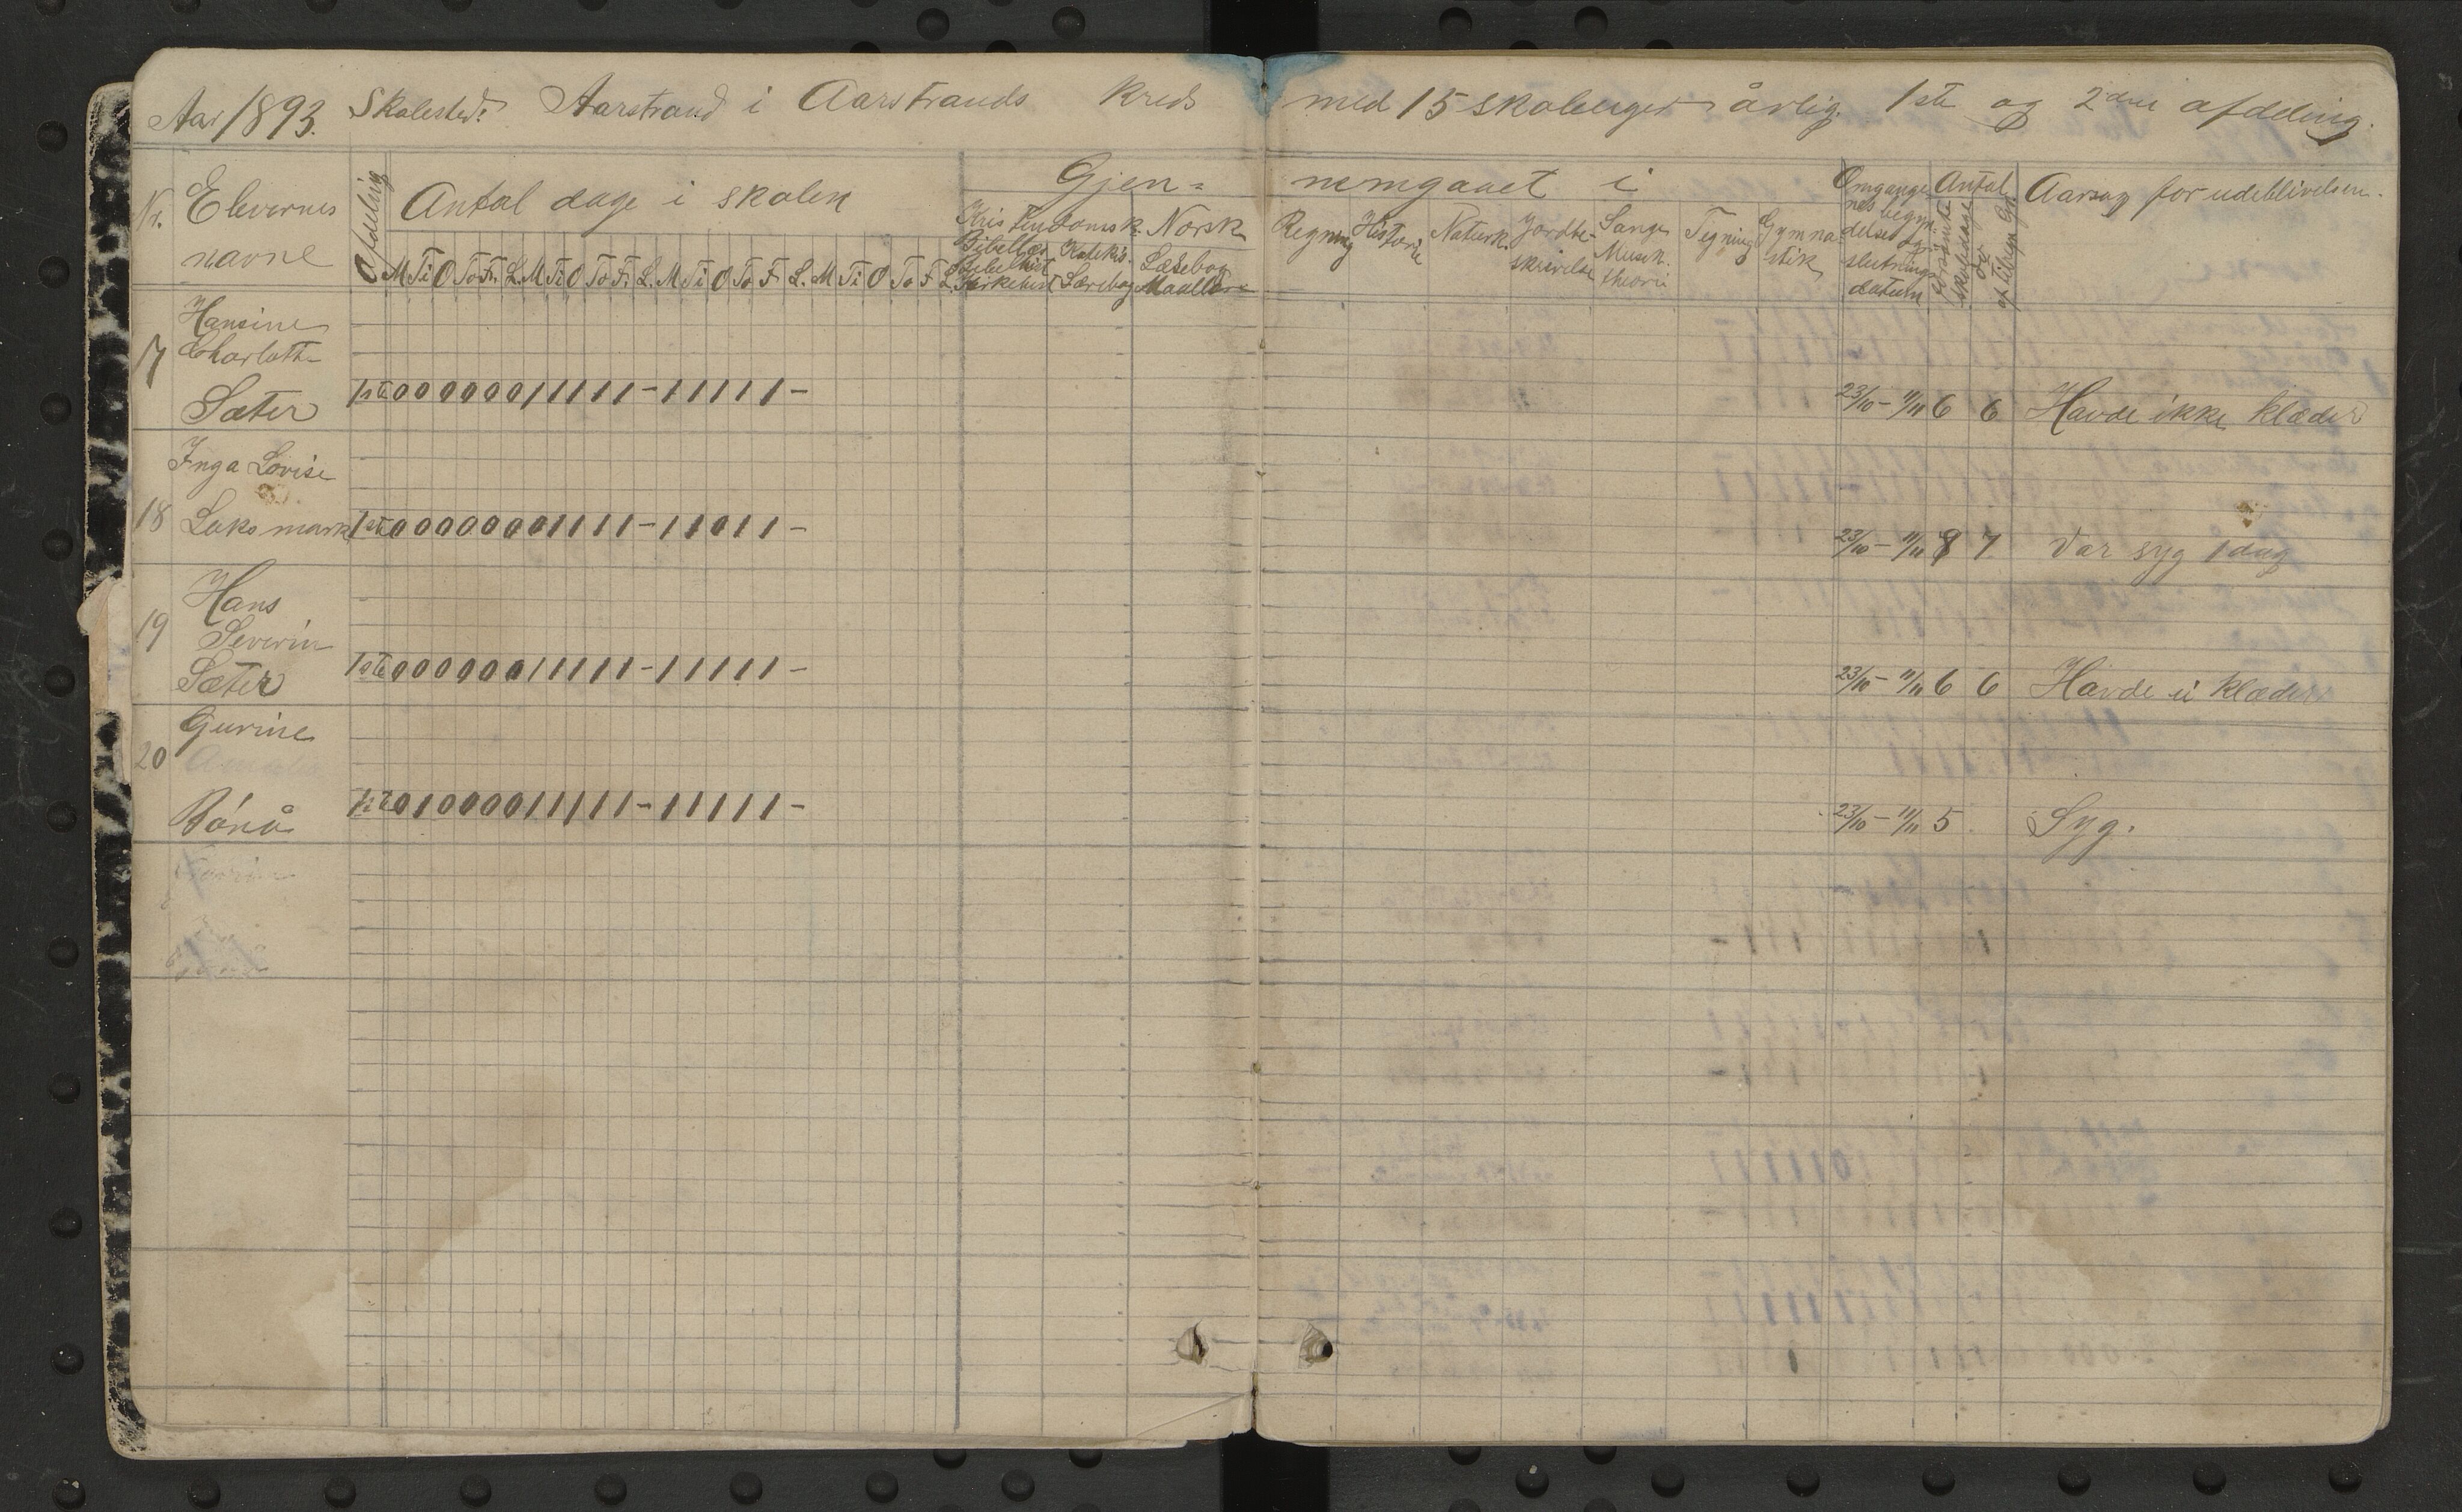 Aar 1893. Skolested: Aarstrand i Aarstrands Kreds med 15 skoleuger årlig. 1ste og 2den afdeling.
Nr. Elevernes navne Afdeling Antal dage i skolen Gjen= nemgaaet i Omgangenes begyndelses og slutnings datum Antal forsømte skoledage Aarsag for udeblivelsen.
Kristendomsk. Norsk Regning Historie Naturk. Jordbeskrivelse Sang Musik theori Tegning Gymnastik
Bibellæs Bibelhist Kirkehist Katekis. Lærebog Læsebog Maallær
M Ti O To Fr. L. M Ti O To Fr. L. M Ti O To F. L. M Ti O To F L.
Hansine
17 Charlothe
Sæter 1ste 0 0 0 0 0 0 1 1 1 1 1 – 1 1 1 1 1 – 23/10 – 11/11 6 6 Havde ikke klæder
Inga Lovise
18 Laksmark 1ste 0 0 0 0 0 0 0 1 1 1 1 – 1 1 0 1 1 – 23/10 – 11/11 8 7 Var syg 1 dag
Hans
19 Severin
Sæter 1ste 0 0 0 0 0 0 1 1 1 1 1 – 1 1 1 1 1 – 23/10 – 11/11 6 6 Havde ei klæder
Gurine
20
Rånå 1ste 0 1 0 0 0 0 1 1 1 1 1 – 1 1 1 1 1 – 23/10 – 11/11 5 Syg.